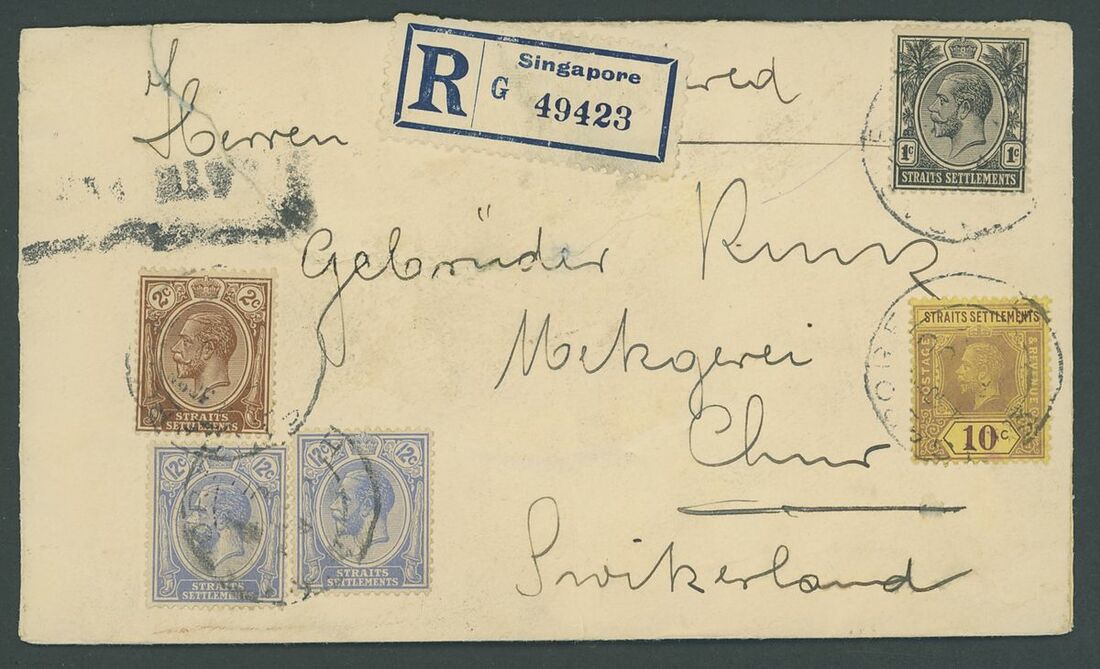 R G Singapore 49423
Herren
Gebrüder Kunz
Metzgerei
Chur
Switzerland
1c 1c
STRAITS SETTLEMENTS
2c 2c
STRAITS
SETTLEMENTS
STRAITS SETTLEMENTS
POSTAGE & REVENUE
10c
12c 12c
STRAITS
SETTLEMENTS
12c 12c
STRAITS
SETTLEMENTS